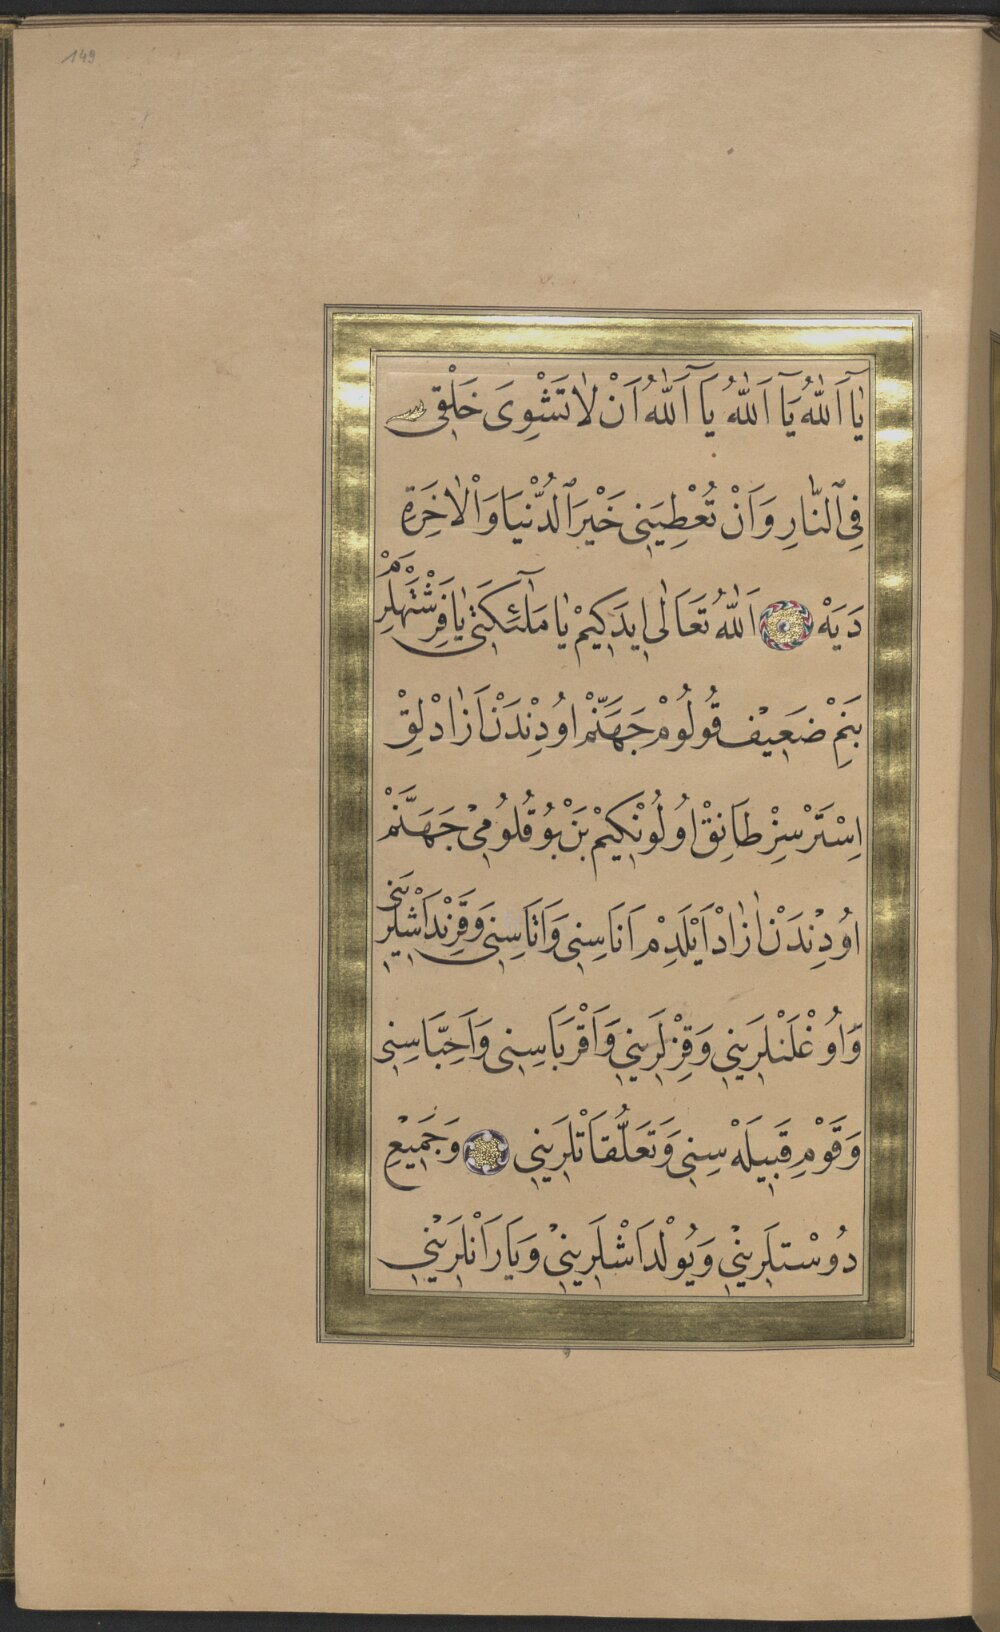 149
يَا اَللّٰهُ يَآ اَللّٰهُ يَآ اَللّٰهُ اَنْ لَاتَشْوِىَ خَلْقِى
فِى النَّارِ وَاَنْ تُعْطِيَنِى خَيْرَ الدُّنْيَا وَالْاٰخِرَةِ
دَيَهْ اَللّٰهُ تَعَالٰى ايدَكِيمْ يَا مَلٰٓئِكَتِى يَا فَرِشْتَهْلَرِمْ
بَنِمْ ضَعِيفْ قُولُومْ جَهَنَّمْ اوُدِنْدَنْ اَزَادْلِقْ
اِسْتَرْ سِزْ طَانِقْ اوُلُونْكِيمْ بَنْ بُو قُلُومِى جَهَنَّمْ
اوُدِنْدَنْ اَزَادْ اَيْلَدِمْ اَنَاسِنِى وَاَتَاسِنِى وَقَرِنْدَاشْلَرِينِى
وَاوُغْلَنْلَرِينِى وَقِزْلَرِينِى وَاَقْرَبَاسِنِى وَاَحِبَّاسِنِى
وَقَوْمِ قَبِيلَهْ سِنِى وَتَعَلُّقَاتْلَرِينِى وَجَمِيعِ
دُوسْتلَرِينِى وَيُولْدَاشْلَرِينِى وَيَارَانْلَرِينِى